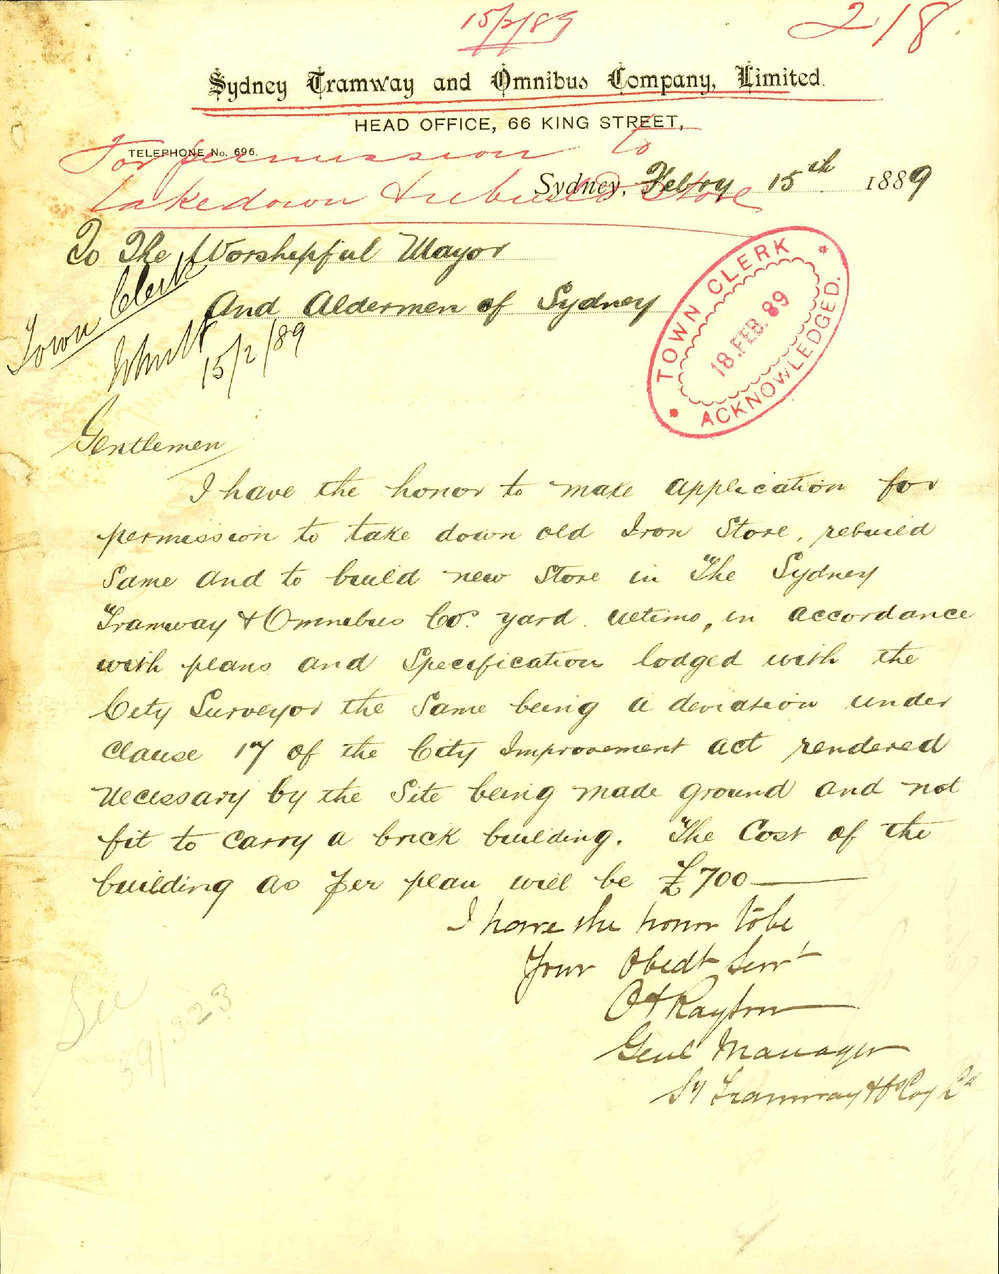 15/2/89
218
Sydney Tramway and Omnibus Company, Limited.
HEAD OFFICE, 66 KING STREET,
TELEPHONE No. 696.
For permission to
takedown & rebuild Store
Sydney, Febry 15th 1889
To The Worshipful Mayor
And Aldermen of Sydney
Town Clerk
15/2/89
TOWN CLERK
18.FEB.89
ACKNOWLEDGED.
Gentlemen
I have the honor to make application for
permission to take down old Iron Store, rebuild
Same and to build new Store in The Sydney
Tramway & Omnibus Co. yard Ultimo, in accordance
with plans and Specification lodged with the
City Surveyor the Same being a deviation under
Clause 17 of the City Improvement act rendered
necessary by the Site being made ground and not
fit to carry a brick building. The Cost of the
building as per plan will be £700
I have the honor to be
Your Obedt Servt
Genl Manager
Sy Tramway & O Coy Ld
See
89/323